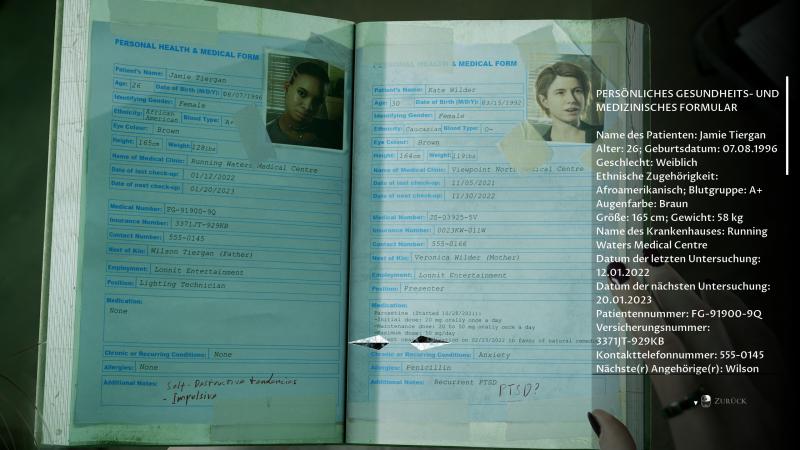 PERSONAL HEALTH & MEDICAL FORM
Patient's Name: Jamie Tiergan
Age: 26 Date of Birth (M/D/Y): 08/07/1996
Identifying Gender: Female
Ethnicity: African American Blood Type: A+
Eye Colour: Brown
Height: 165cm Weight: 128lbs
Name of Medical Clinic: Running Waters Medical Centre
Date of last check-up: 01/12/2022
Date of next check-up: 01/20/2023
Medical Number: FG-91900-9Q
Insurance Number: 3371JT-929KB
Contact Number: 555-0145
Next of Kin: Wilson Tiergan (Father)
Employment: Lonnit Entertainment
Position: Lighting Technician
Medication:
None
Chronic or Recurring Conditions: None
Allergies: None
Additional Notes: Self-Destructive tendencies
- Impulsive
HEALTH & MEDICAL FORM
Patient's Name: Kate Wilder
Age: 30 Date of Birth (M/D/Y): 03/15/1992
Identifying Gender: Female
Ethnicity: Caucasian Blood Type: O-
Eye Colour: Brown
Height: 164cm Weight: 119lbs
Name of Medical Clinic: Viewpoint North Medical Centre
Date of last check-up: 11/05/2021
Date of next check-up: 11/30/2022
Medical Number: JS-03925-5V
Insurance Number: 0023KW-011W
Contact Number: 555-0166
Next of Kin: Veronica Wilder (Mother)
Employment: Lonnit Entertainment
Position: Presenter
Medication:
Paroxetine (Started 10/28/2021):
-Initial dose: 20 mg orally once a day
-Maintenance dose: 20 to 50 mg orally once a day
on 02/15/2022 in favor of natural
Chronic or Recurring Conditions: Anxiety
Allergies: Penicillin
Additional Notes: Recurrent PTSD
PTSD?
PERSÖNLICHES GESUNDHEITS- UND
MEDIZINISCHES FORMULAR
Name des Patienten: Jamie Tiergan
Alter: 26; Geburtsdatum: 07.08.1996
Geschlecht: Weiblich
Ethnische Zugehörigkeit:
Afroamerikanisch; Blutgruppe: A+
Augenfarbe: Braun
Größe: 165 cm; Gewicht: 58 kg
Name des Krankenhauses: Running
Waters Medical Centre
Datum der letzten Untersuchung:
12.01.2022
Datum der nächsten Untersuchung:
20.01.2023
Patientennummer: FG-91900-9Q
Versicherungsnummer:
3371JT-929KB
Kontakttelefonnummer: 555-0145
Nächste(r) Angehörige(r): Wilson
ZURÜCK